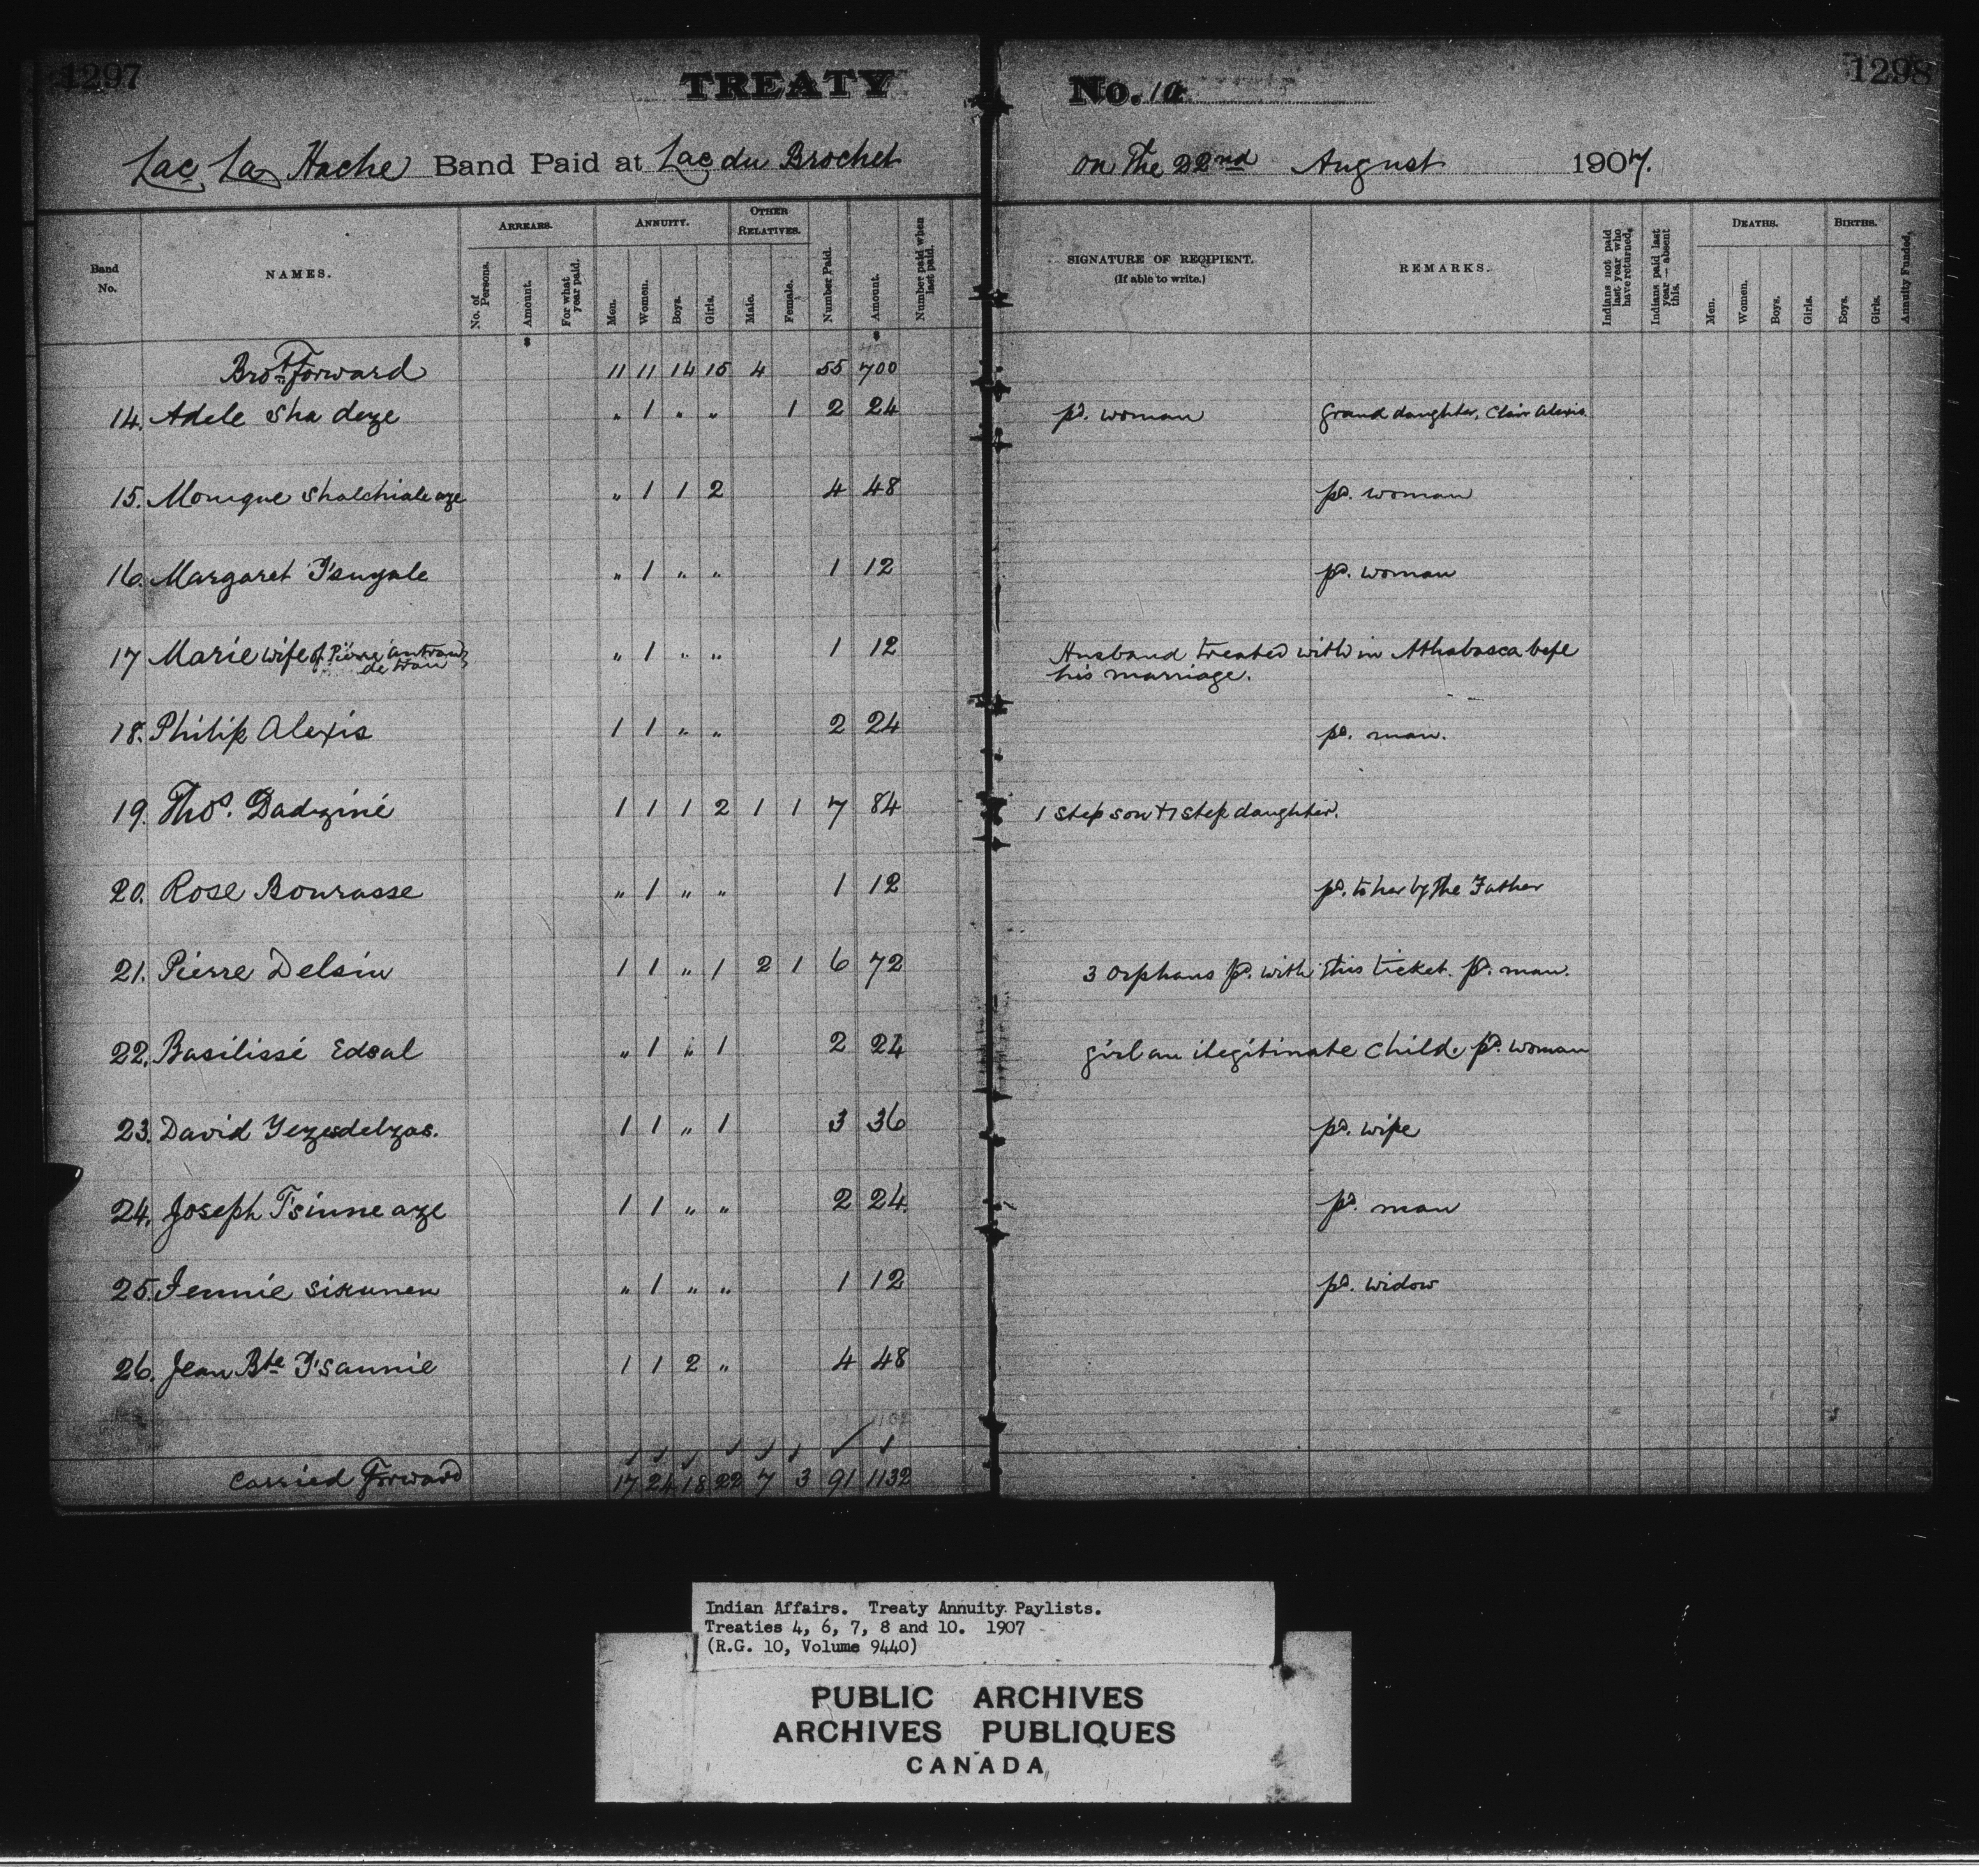 1297 TREATY No. 10 1298
Lac La Hache Band Paid at Lac du Brochet on the 22nd August 1907.
Band No. NAMES. ARREARS. No. of Persons. Amount. For what year paid. ANNUITY. Men. Women. Boys. Girls. OTHER RELATIVES. Male. Female. Number Paid. Amount. Number paid when last paid. SIGNATURE OF RECIPIENT. (If able to write.) REMARKS. Indians not paid last year who have returned. Indians paid last year — absent this. DEATHS. Men. Women. Boys. Girls. BIRTHS. Boys. Girls. Annuity Funded.
Brot. Forward 11 11 14 15 4 55 700
14. Adele Sha deze " 1 " " 1 2 24 pd. woman Grand daughter, Clair Alexis
15. Monique Shalchiale aze " 1 1 2 4 48 pd. woman
16. Margaret T'suzale " 1 " " 1 12 pd. woman
17 Marie wife of Pierre " 1 " " 1 12 Husband treated with in Athabasca befe
his marriage.
18. Philip Alexis 1 1 " " 2 24 pd. man.
19. Thos. Dadziné 1 1 1 2 1 1 7 84 1 step son + 1 step daughter.
20. Rose Bourasse " 1 " " 1 12 pd. to her by the Father
21. Pierre Delsin 1 1 " 1 2 1 6 72 3 orphans pd. with this ticket. pd. man.
22. Basilissé Edsal " 1 " 1 2 24 girl an ilegitinate child. pd. woman
23. David Yezesdelzas. 1 1 " 1 3 36 pd. wife
24. Joseph T'sinne aze 1 1 " " 2 24 pd. man
25. Jennie Sikunen " 1 " " 1 12 pd. widow
26. Jean Bte T'sannie 1 1 2 " 4 48
Carried Forward 17 24 18 22 7 3 91 1132
Indian Affairs. Treaty Annuity Paylists.
Treaties 4, 6, 7, 8 and 10. 1907
(R.G. 10, Volume 9440)
PUBLIC ARCHIVES
ARCHIVES PUBLIQUES
CANADA